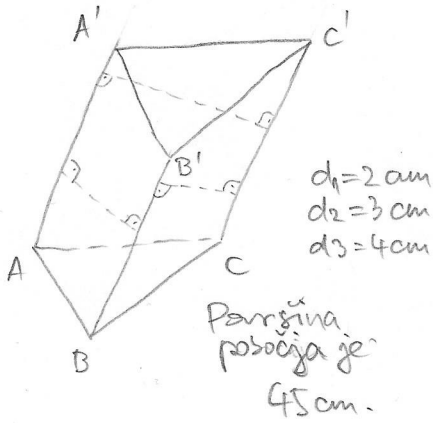 A'
C'
B'
d1=2cm
d2=3cm
d3=4cm
A
C
B
Površina
pobočja je
45cm.